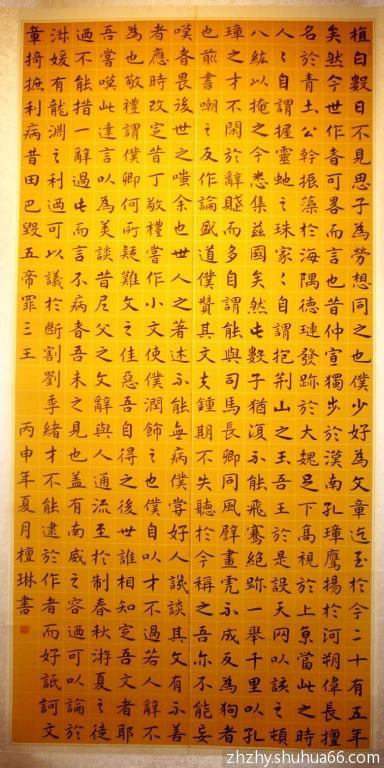 植白數日不見思子為勞想同之也僕少好為文章迄至於今二十有五年
矣然今世作者可略而言也昔仲宣獨步於漢南孔璋鷹揚於河朔偉長擅
名於青土公幹振藻於海隅德璉發跡於大魏足下高視於上京當此之時
人〻自謂握靈虵之珠家〻自謂抱荆山之玉吾王於是設天网以該之頓
八紘以掩之今悉集兹國矣然此數子猶復不能飛騫絕跡一舉千里以孔
璋之才不閑於辭賦而多自謂能與司馬長卿同風譬畫虎不成反為狗者
也前書嘲之反作論盛道僕贊其文夫鍾期不失聽於今稱之吾亦不能妄
嘆者畏後世之嗤余也世人之著述不能無病僕嘗好人譏談其文有不善
者應時改定昔丁敬禮嘗作小文使僕潤飾之僕自以才不過若人辭不
為也敬禮謂僕卿何所疑難文之佳惡吾自得之後世誰相知定吾文者耶
吾嘗嘆此達言以為美談昔尼父之文辭與人通流至於制春秋游夏之徒
迺不能措一辭過此而言不病者吾未之見也蓋有南威之容迺可以論於
淋媛有龍淵之利迺可以議於斷割劉季緒才不能逮於作者而好詆訶文
章掎摭利病昔田巴毀五帝罪三王
丙申年夏月檀琳書
zhzhy.shuhua66.com